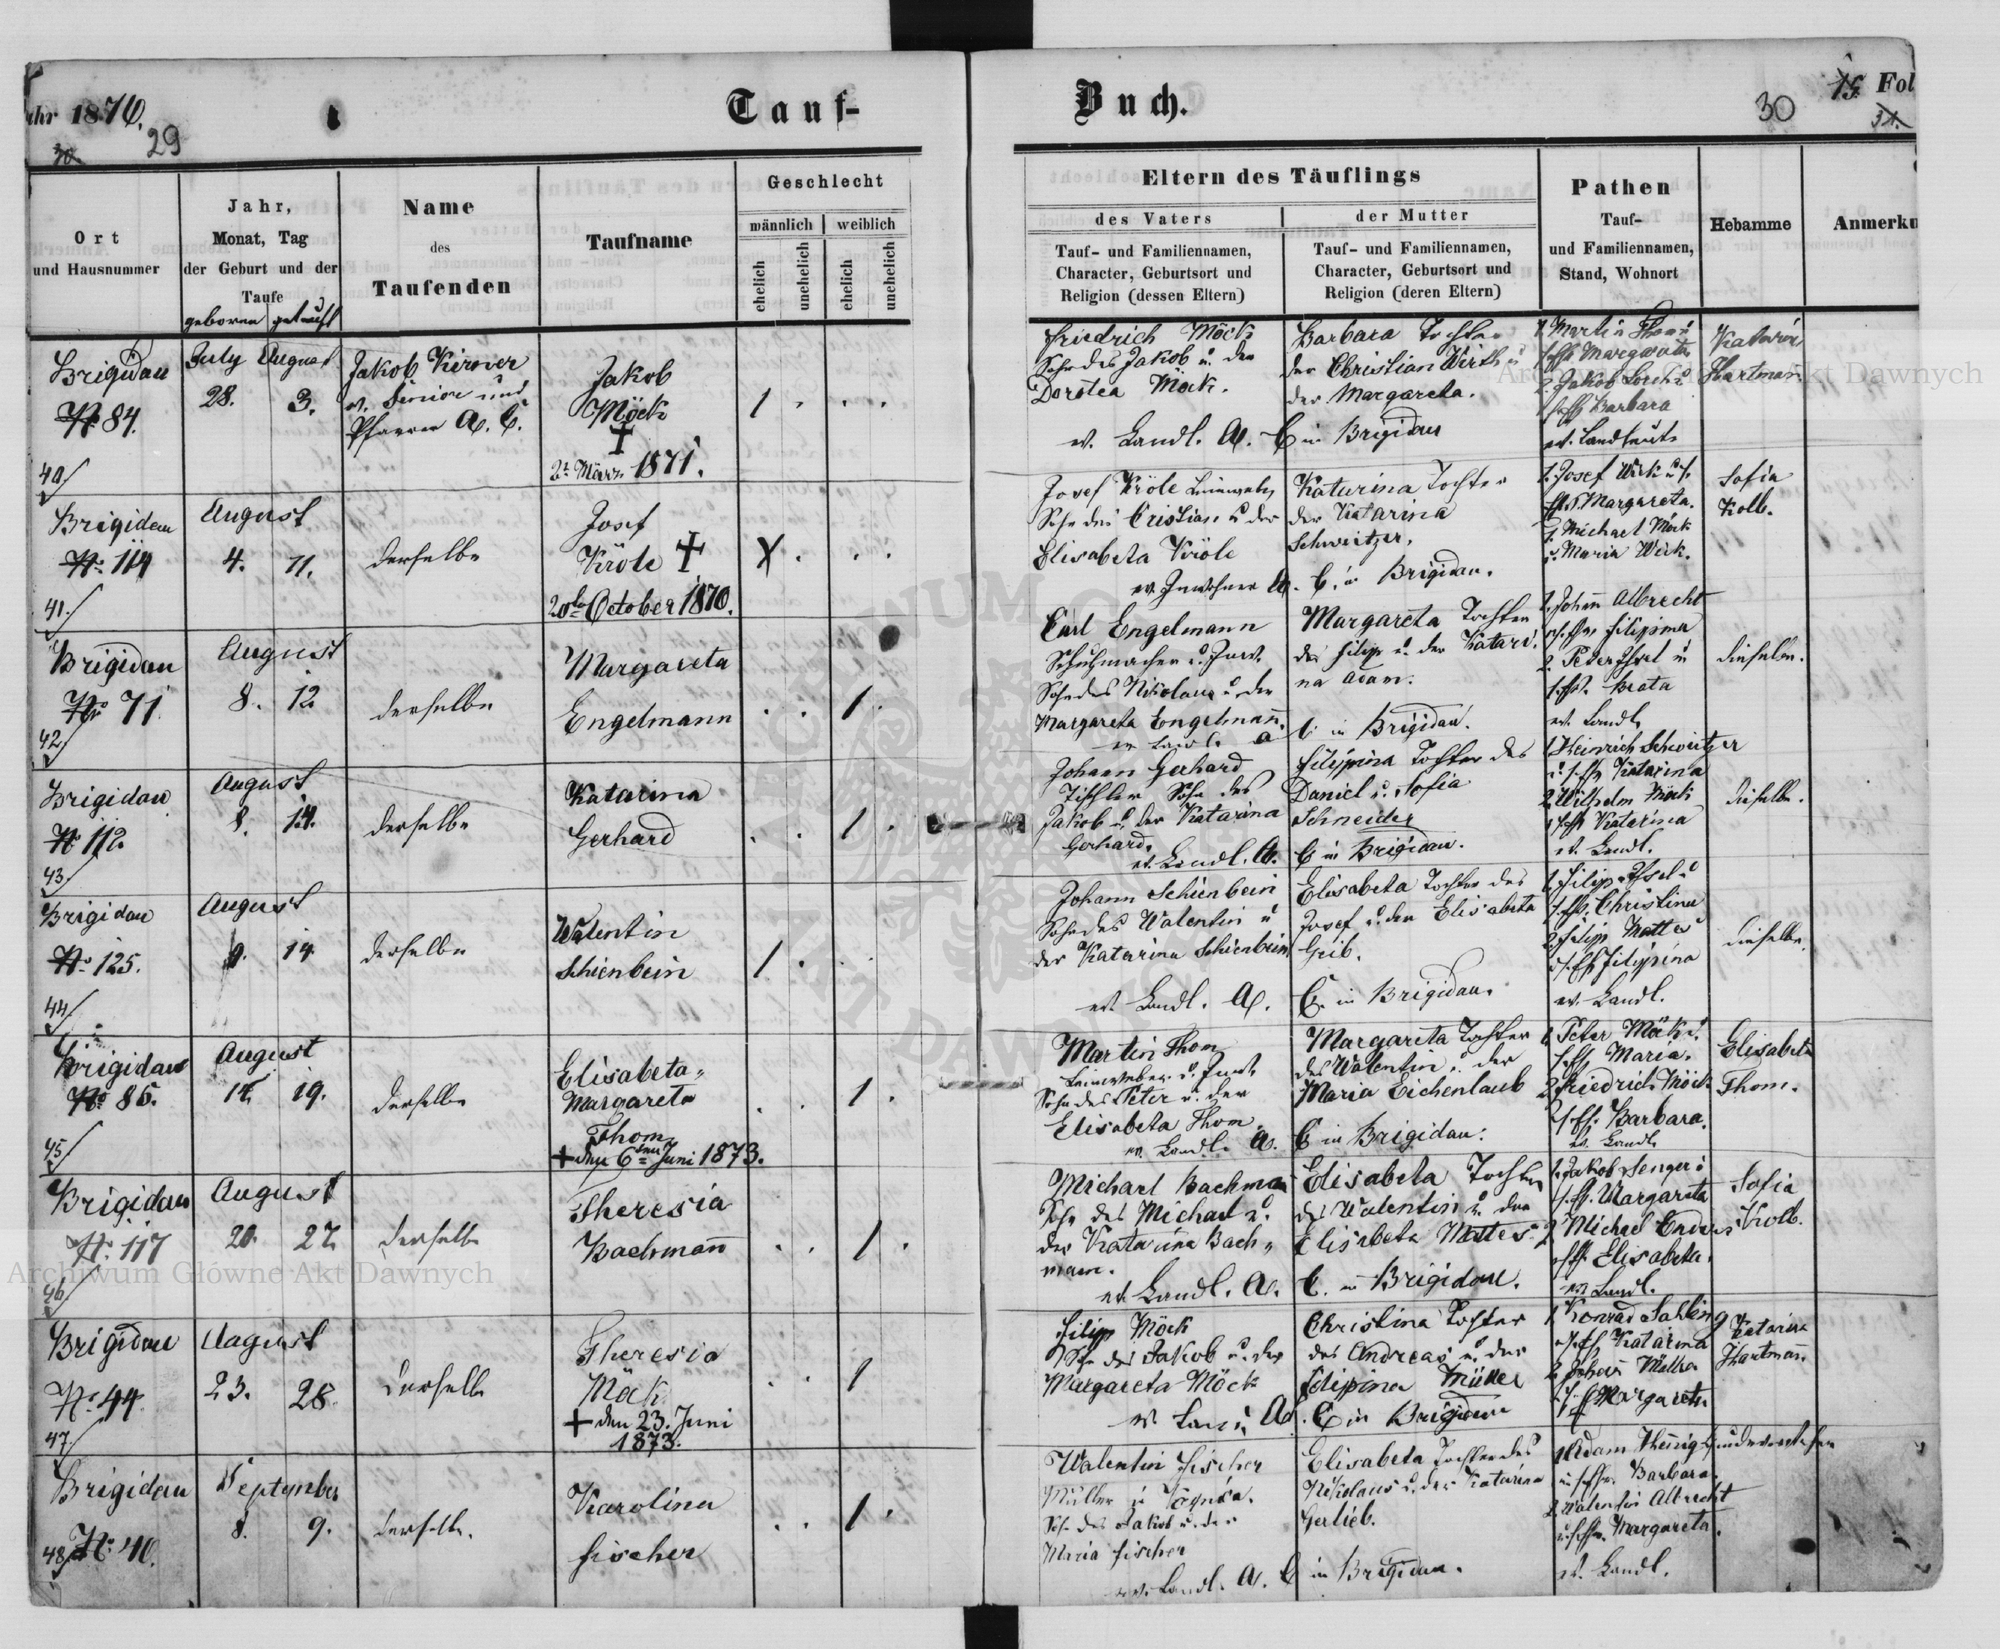 Jahr 1870.
Tauf-
Buch.
15. Fol
30.
29
30
31.
Ort
und Hausnummer
Jahr,
Monat, Tag
der Geburt und der
Taufe
geboren getauft
Name
des
Taufenden
Taufname
Geschlecht
männlich
weiblich
ehelich
unehelich
ehelich
unehelich
Eltern des Täuflings
des Vaters
Tauf- und Familiennamen,
Character, Geburtsort und
Religion (dessen Eltern)
der Mutter
Tauf- und Familiennamen,
Character, Geburtsort und
Religion (deren Eltern)
Pathen
Tauf-
und Familiennamen,
Stand, Wohnort
Hebamme
Anmerku
Brigidau
No 84.
40
July August
28. 3.
Jakob Kirner
ev. Senior und
Pfarrer A. C.
Jakob
Möck
2t März 1871.
Friedrich Möck
Sohn des Jakob u. der
Dorotea Möck.
ev. Landl. A.
Barbara Tochter
der Christian Wirth u
der Margareta.
C in Brigidau
1. Martin Thom
Margareta
2. Jakob
Barbara
ev. Landleute
Katarina
Hartman
Brigidau
No 114
41.
August
4. 11.
derselbe
Josef
Kröle
October 1870.
Josef Kröle Leinweber
Sohn des Cristian u der
Elisabeta Kröle
ev. Inwohner A.
Katarina Tochter
der Katarina
Schweitzer.
C. in Brigidau.
1. Josef
Margareta.
2. Michael Möck
u. Maria
Sofia
Kolb.
Brigidau
No 71
42
August
8. 12
derselbe
Margareta
Engelmann
Carl Engelmann
Schuhmacher u. Inw.
Sohn des Nikolaus u. der
Margareta Engelmann.
ev. Landl. A
Margareta Tochter
des Filip u. der Katari
na Adam.
C in Brigidau.
1. Johann Albrecht
Filipina
2. Peter
Beata
ev. Landl.
dieselbe.
Brigidau
No 112.
43
August
8. 14.
derselbe
Katarina
Gerhard
Johann Gerhard
Tischler Sohn des
Jakob u. der Katarina
Gerhard.
ev. Landl. A.
Filipina Tochter des
Daniel u. Sofia
Schneider
C in Brigidau.
1. Heinrich Schweitzer
Katarina
2. Wilhelm Möck
Katarina
ev. Landl.
dieselbe.
Brigidau
No 125.
44
August
9. 14.
derselbe
Walentin
Schienbein
Johann Schienbein
Sohn des Walentin u
der Katarina Schienbein
ev. Landl. A.
Elisabeta Tochter des
Josef u. der Elisabeta
Geib.
C. in Brigidau.
1. Filip
Christina
2. Filip
Filipina
ev. Landl.
dieselbe.
Brigidau
No 86.
45
August
19.
derselbe
Elisabeta
Margareta
Thom
den 6ten Juni 1873.
Martin Thom
Leinweber u. Inw.
Sohn des Peter u. der
Elisabeta Thom.
ev. Landl. A.
Margareta Tochter
des Walentin u. der
Maria Eichenlaub
C in Brigidau.
1. Peter Möck u.
Maria.
2. Friedrich Möck
Barbara.
ev. Landl.
Elisabeta
Thom.
Brigidau
No 117
46
August
20. 27.
derselbe
Theresia
Bachmann
Michael Bachman
Sohn des Michael u.
der Katarina Bach-
mann.
ev. Landl. A.
Elisabeta Tochter
des Walentin u. der
Elisabeta Mattes.
C. in Brigidau.
1. Jakob Senger u
Margareta
2. Michael Enders
Elisabeta.
ev. Landl.
Sofia
Kolb.
Brigidau
No 44.
47.
August
23. 28.
derselbe
Theresia
Möck
den 23. Juni
1873.
Filip Möck
Sohn des Jakob u. der
Margareta Möck
Christina Tochter
des Andreas u. der
Filipina Müller
C in Brigidau
1. Konrad
Katarina
2. Johann Müller
Margareta
Katarina
Hartmann.
Brigidau
No 40.
48
September
8. 9.
derselbe.
Karolina
Fischer
Walentin Fischer
Müller in
Sohn des Jakob u. der
Maria Fischer
ev. Landl. A.
Elisabeta Tochter des
Nikolaus u. der Katarina
Gerlieb.
C in Brigidau.
1. Adam
Barbara
2. Walentin Albrecht
Margareta.
ev. Landl.
Archiwum Główne Akt Dawnych
Archiwum Główne Akt Dawnych